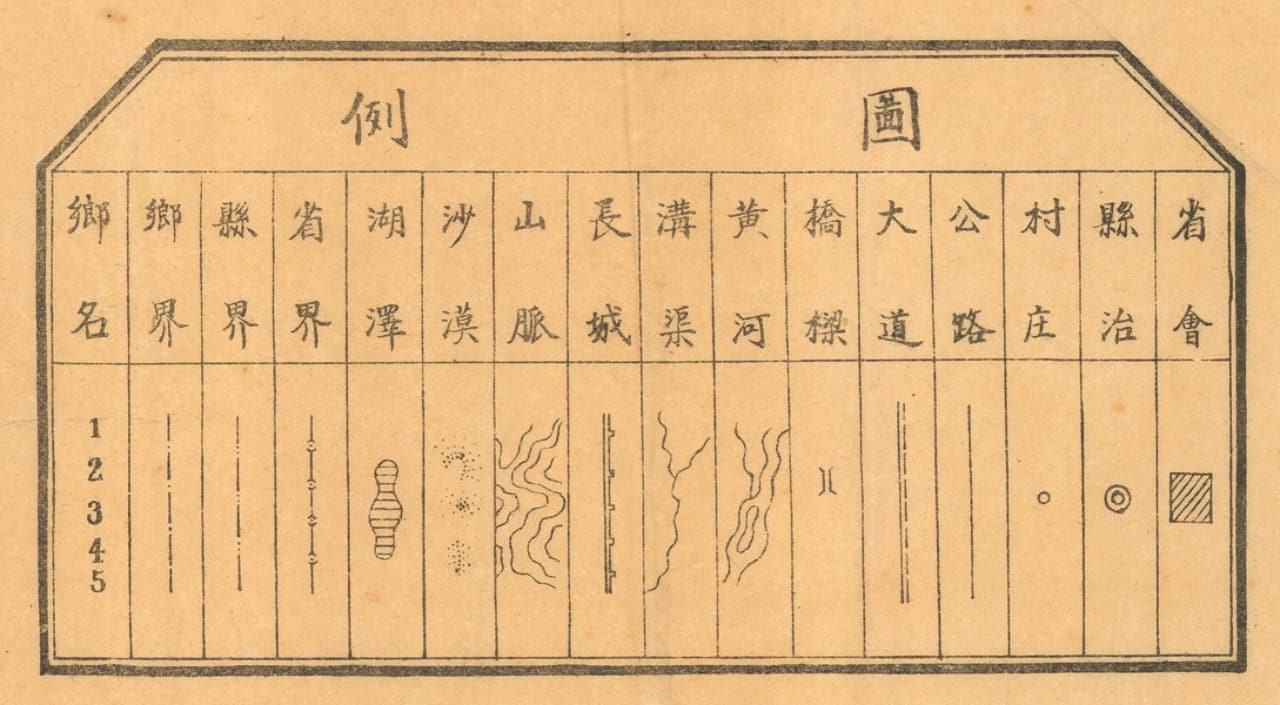 圖例
省會
縣治
村庄
公路
大道
橋樑
黄河
溝渠
長城
山脈
沙漠
湖澤
省界
縣界
鄉界
鄉名
1
2
3
4
5